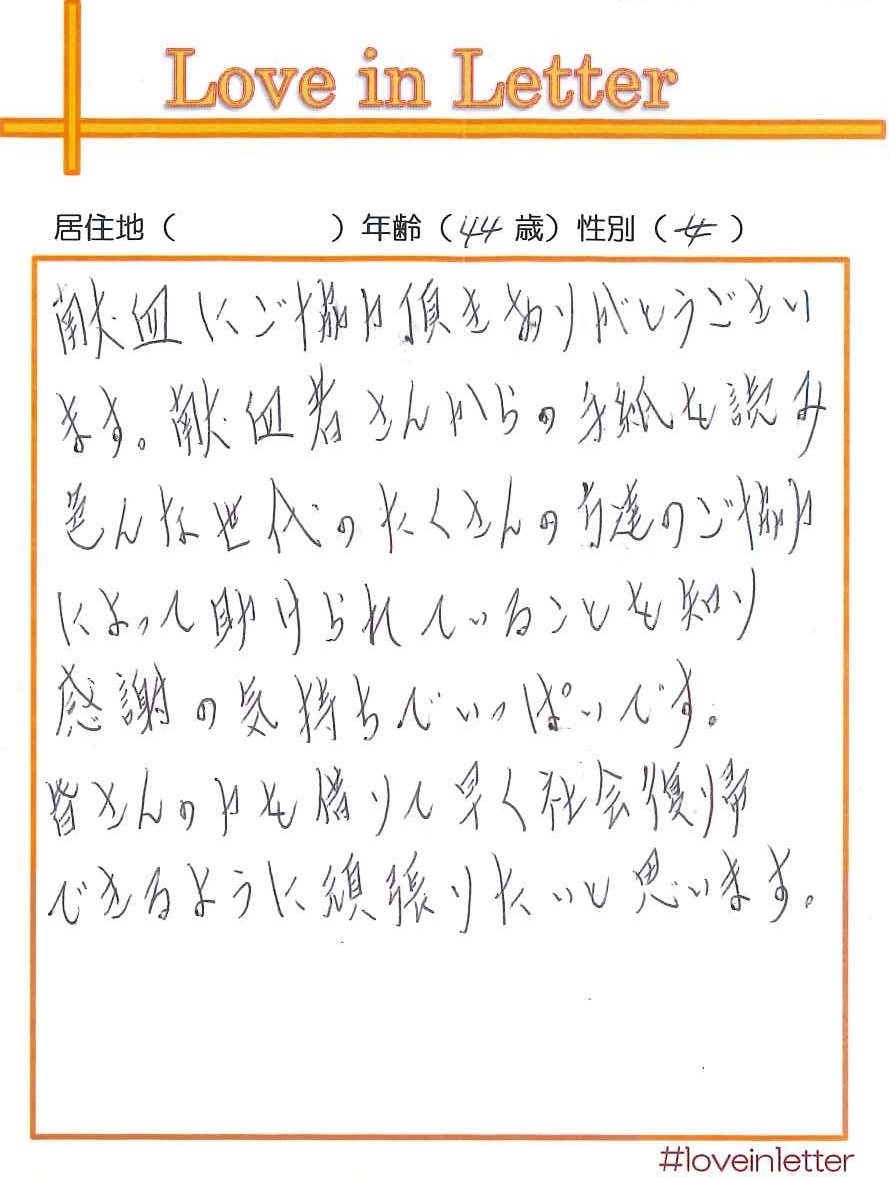 Love in Letter
居住地（　　　　　）年齢（44 歳）性別（女）
献血にご協力頂きありがとうござい
ます。献血者さんからの手紙も読み
色んな世代のたくさんの方達のご協力
によって助けられていることも知り
感謝の気持ちでいっぱいです。
皆さんの力も借りて早く社会復帰
できるように頑張りたいと思います。
#loveinletter